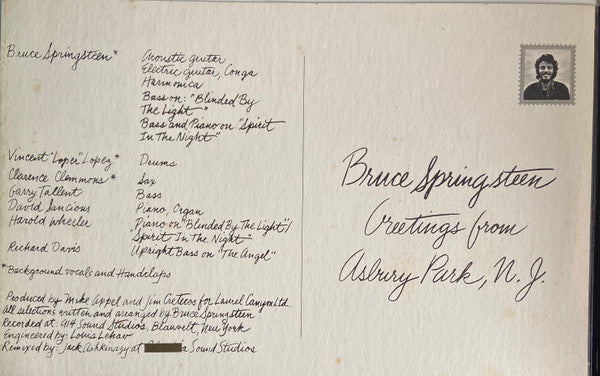 Bruce Springsteen*
Acoustic guitar
Electric guitar, Conga
Harmonica
Bass on: "Blinded By
The Light"
Bass and Piano on "Spirit
In The Night"
Vincent "Loper" Lopez* Drums
Clarence Clemmons* Sax
Garry Tallent Bass
David Sancious Piano, Organ
Harold Wheeler Piano on "Blinded By The Light"/
Spirit In The Night
Richard Davis Upright Bass on "The Angel"
*Background vocals and Handclaps
Produced by Mike Appel and Jim Cretecos for Laurel Canyon Ltd.
All selections written and arranged by Bruce Springsteen
Recorded at: 914 Sound Studios, Blauvelt, New York
Engineered by: Louis Lahav
Remixed by: Jack Ashkinazy at Sound Studios
Bruce Springsteen
Greetings from
Asbury Park, N. J.